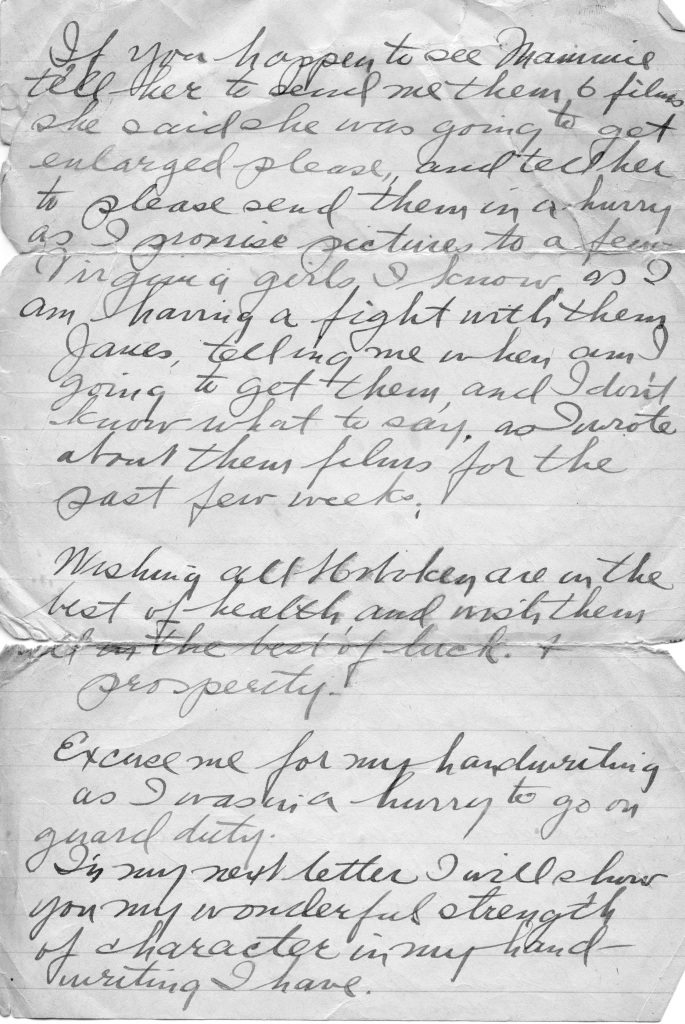 If you happen to see Mammie
tell her to send me them 6 films
she said she was going to get
enlarged please, and tell her
to please send them in a hurry
as I promise pictures to a few
Virginia girls I know, as I
am having a fight with them
Janes, telling me when am I
going to get them, and I don't
know what to say, as I wrote
about them films for the
past few weeks.
Wishing all Hoboken are in the
best of health and wish them
all the best of luck. &
prosperity.
Excuse me for my handwriting
as I was in a hurry to go on
guard duty.
In my next letter I will show
you my wonderful strength
of character in my hand-
writing I have.